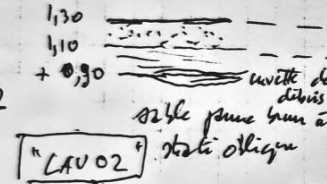 1,30
1,10
+ 0,90
cuvette de
débris
sable jaune brun à
strati oblique
"CAV 02"